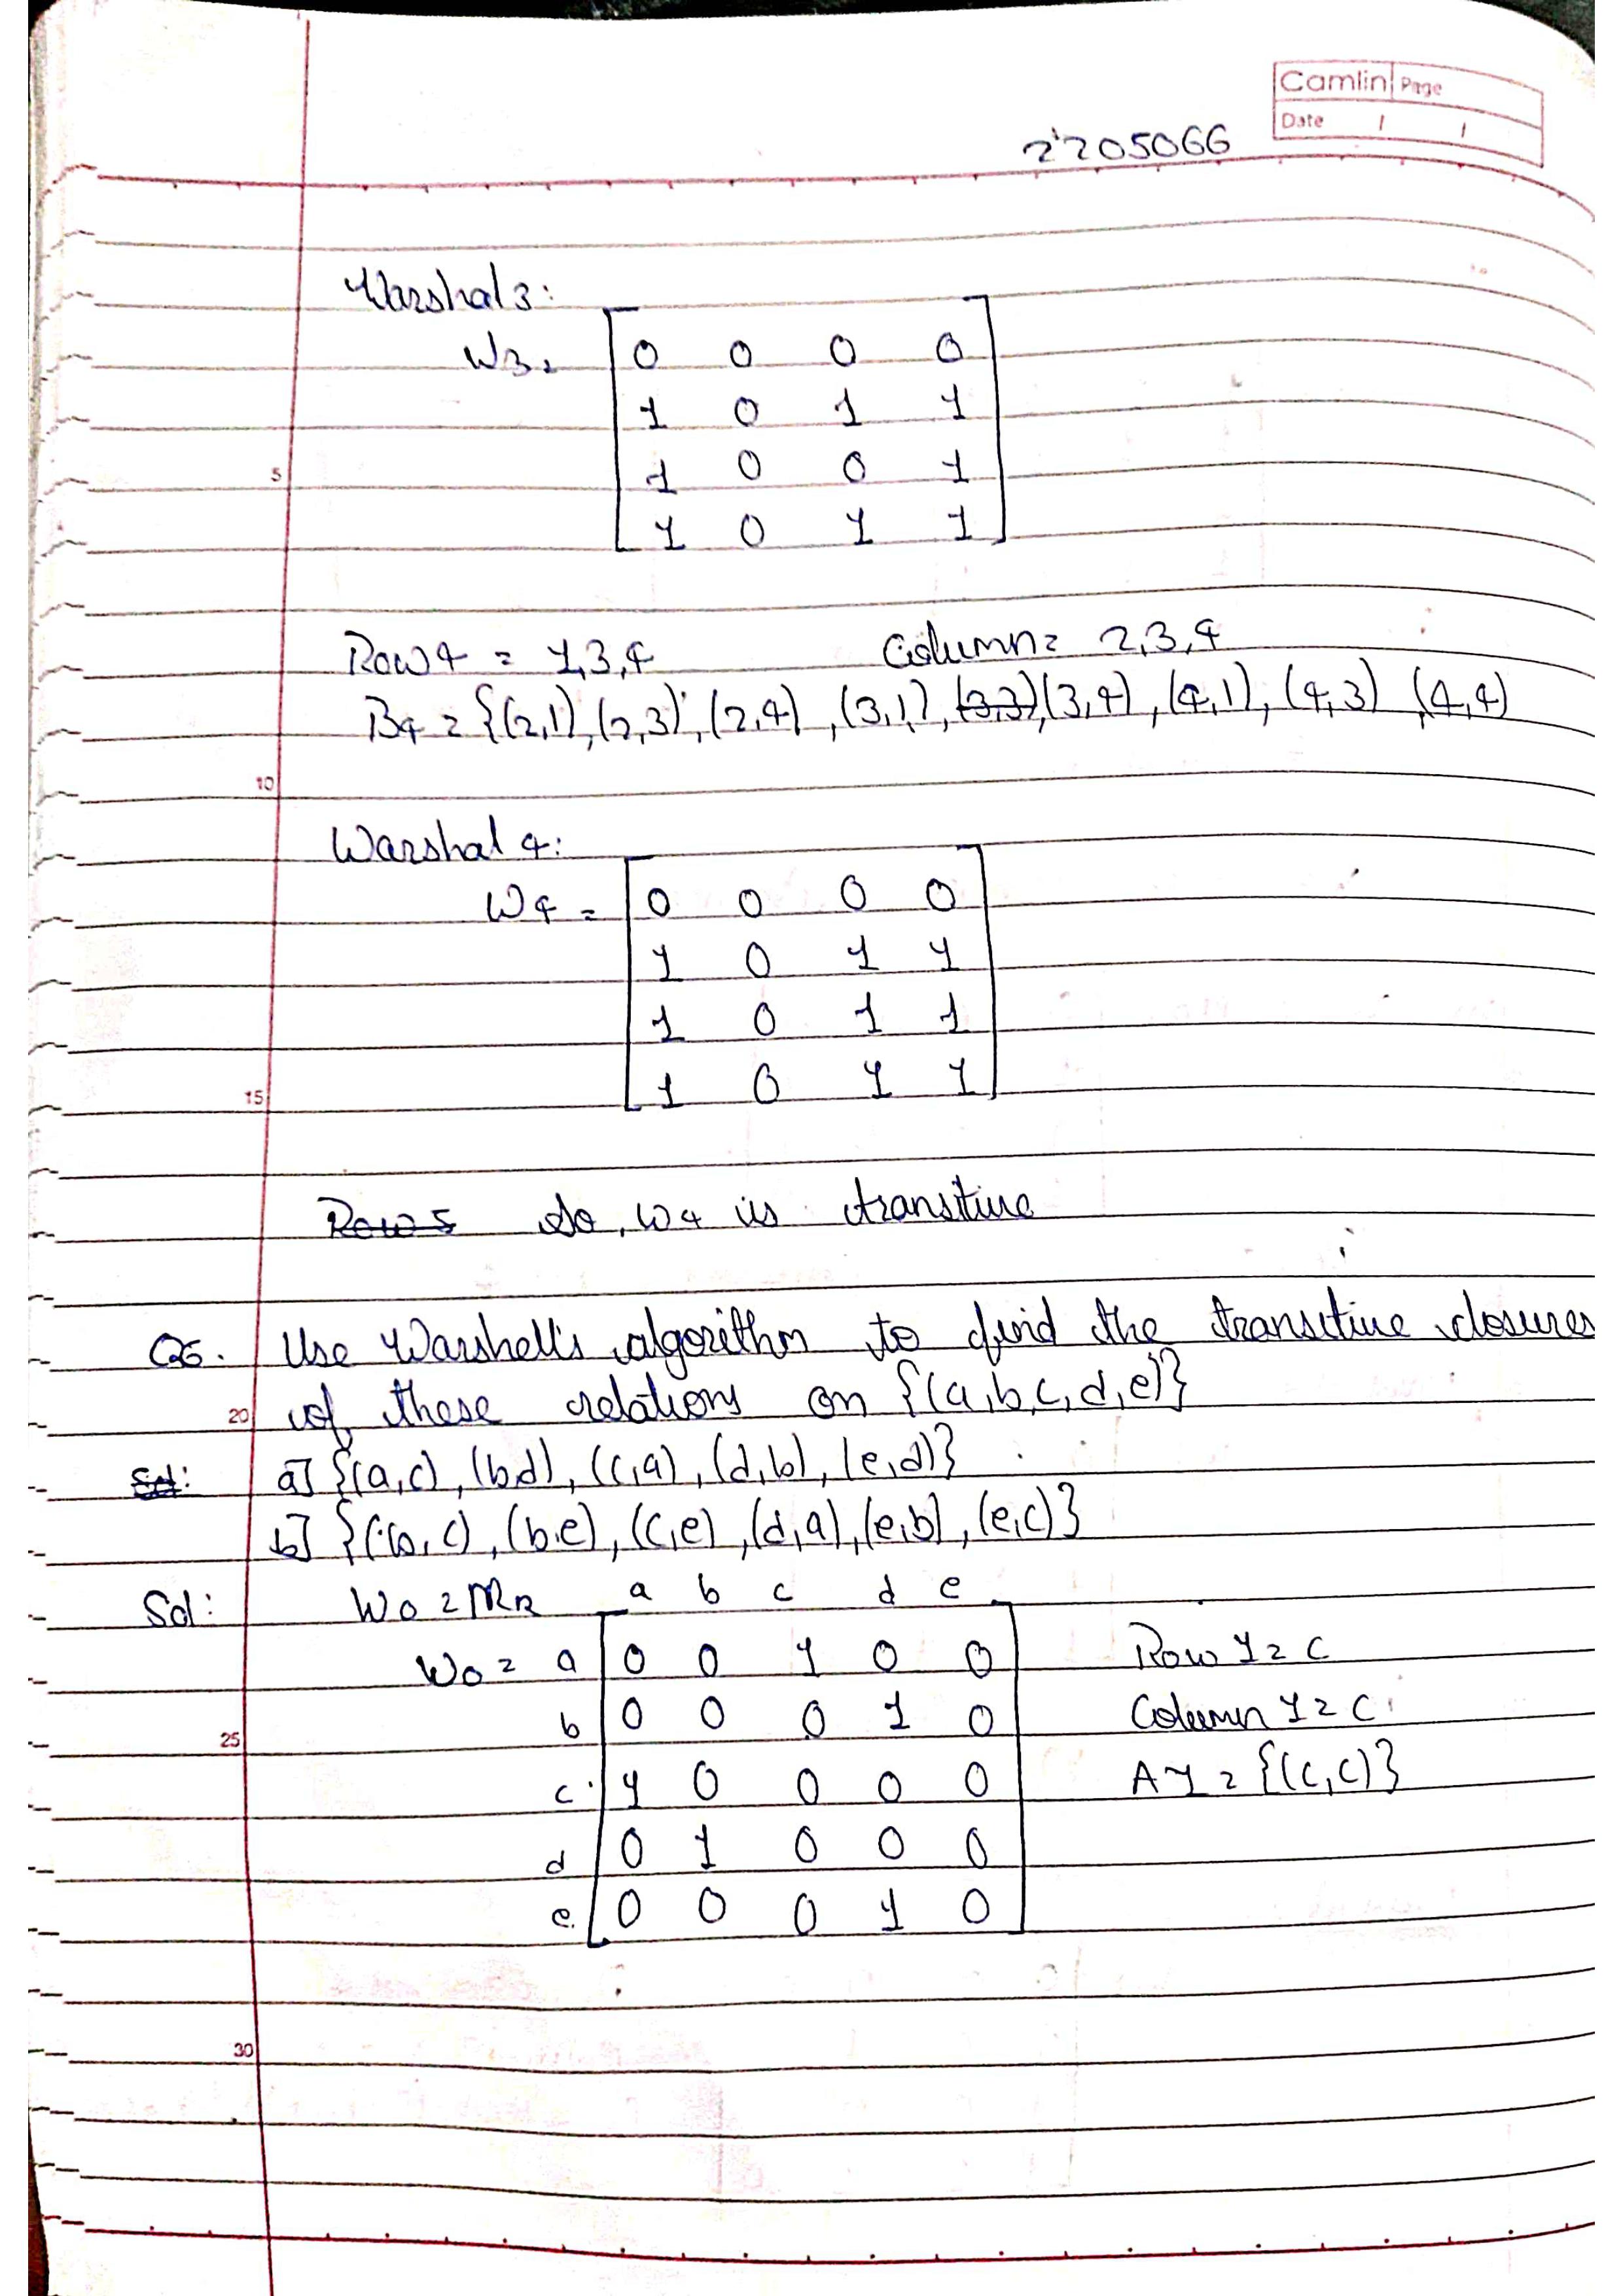 Camlin Page
Date / /
2205066
Warshal 3:
W3 = 0 0 0 0
1 0 1 1
1 0 0 1
1 0 1 1
5
Row 4 = 1,3,4 Column = 2,3,4
B4 = {(2,1), (2,3), (2,4), (3,1), (3,3), (3,4), (4,1), (4,3), (4,4)
10
Warshal 4:
W4 = 0 0 0 0
1 0 1 1
1 0 1 1
1 0 1 1
15
Row 5 So, W4 is transitive
Q6. Use Warshell's algorithm to find the transitive closures
20 of these relations on {(a,b,c,d,e)}
Sol: a] {(a,c), (b,d), (c,a), (d,b), (e,d)}
b] {(b,c), (b,e), (c,e), (d,a), (e,b), (e,c)}
Sol: W0 = MR a b c d e
W0 = a 0 0 1 0 0 Row 1 = c
25 b 0 0 0 1 0 Column 1 = c
c 1 0 0 0 0 A1 = {(c,c)}
d 0 1 0 0 0
e 0 0 0 1 0
30